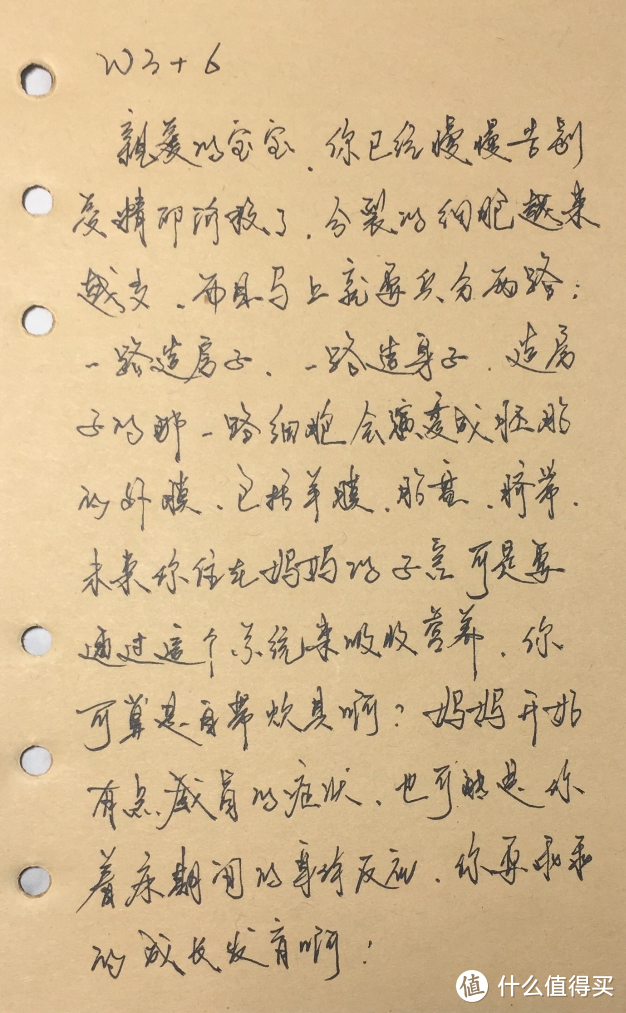 W3+6
親爱的宝宝、你已经慢慢告别
受精卵阶段了，分裂的细胞越来
越多，而且马上就要兵分两路：
一路造房子，一路造身子，造房
子的那一路细胞会演变成胚胎
的外膜、包括羊膜、胎盘、脐带，
未来你住在妈妈的子宫可是要
通过这个系统来吸收营养，你
可算是自带炊具啊？妈妈开始
有点感冒的症状，也可能是你
着床期间的身体反应，你要乖乖
的成长发育啊！
值 什么值得买